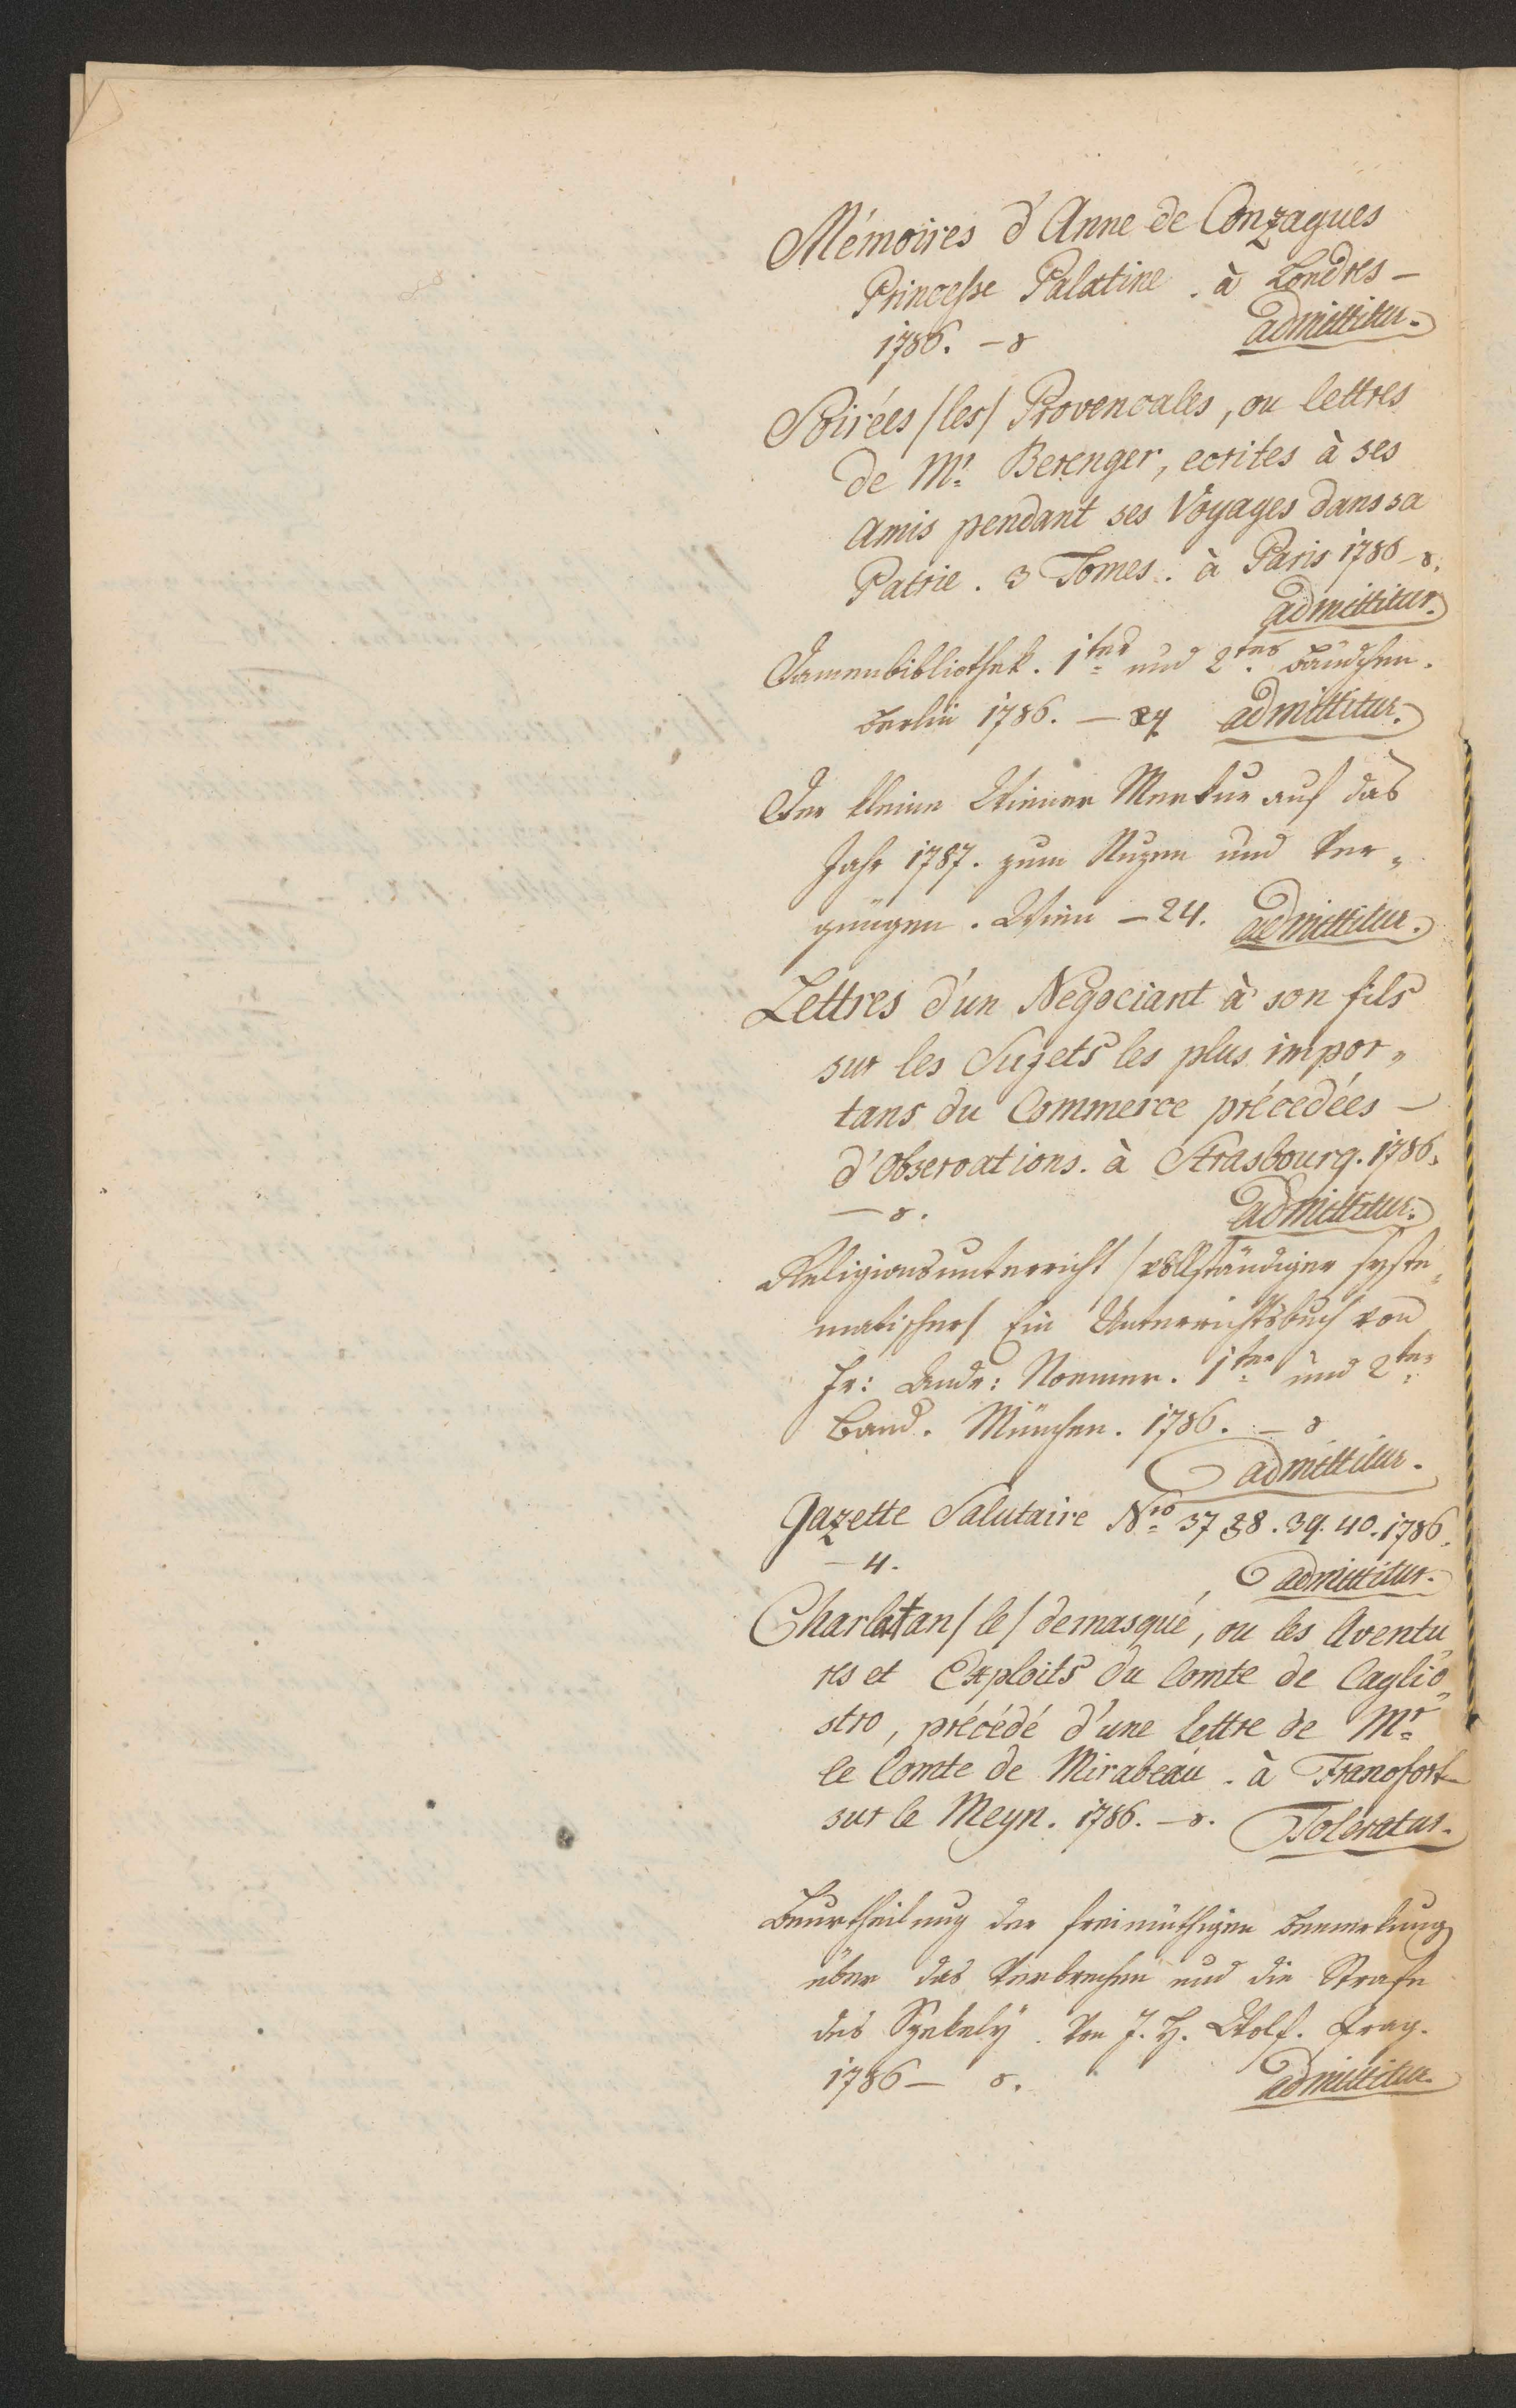 Mémoires d'Anne de Conzagues
Princesse Palatine. à Londres –
1786. – 8 admittitur.
Soirées /les/ Provencales, ou lettres
de Mr. Berenger, ecrites à ses
Amis pendant ses Voyages dans sa
Patrie. 3 Tomes. à Paris 1786 – 8.
admittitur.
Damenbibliothek. 1tes und 2tes Bändchen.
Berlin 1786. – 24 admittitur.
Der kleine Wiener Merkur auf das
Jahr 1787. zum Nuzen und Ver„
gnügen. Wien – 24. admittitur.
Lettres d'un Negociant à son fils
sur les Sujets les plus impor„
tans du Commerce précedées –
d'Observations. à Strasbourg. 1786.
– 8. admittitur.
Religionsunterricht /vollständiger syste„
matischer/ Ein Unterrichtsbuch von
Fr: Andr: 1ter und 2ter
Band. München. 1786. – 8
admittitur.
Gazette Salutaire Nro 37 38. 39. 40. 1786.
– 4. admittitur.
Charlatan /le/ demasqué, ou les Aventu„
res et Exploits du Comte de Caglio„
stro, précédé d'une lettre de Mr
le Comte de Mirabeau. à Francfort
sur le Meyn. 1786. – 8. Toleratur.
Beurtheilung der freimüthigen Bemerkung
über das Verbrechen und die Strafe
des Szekely. Von J. H. Wolf. Prag.
1786 – 8. admittitur.